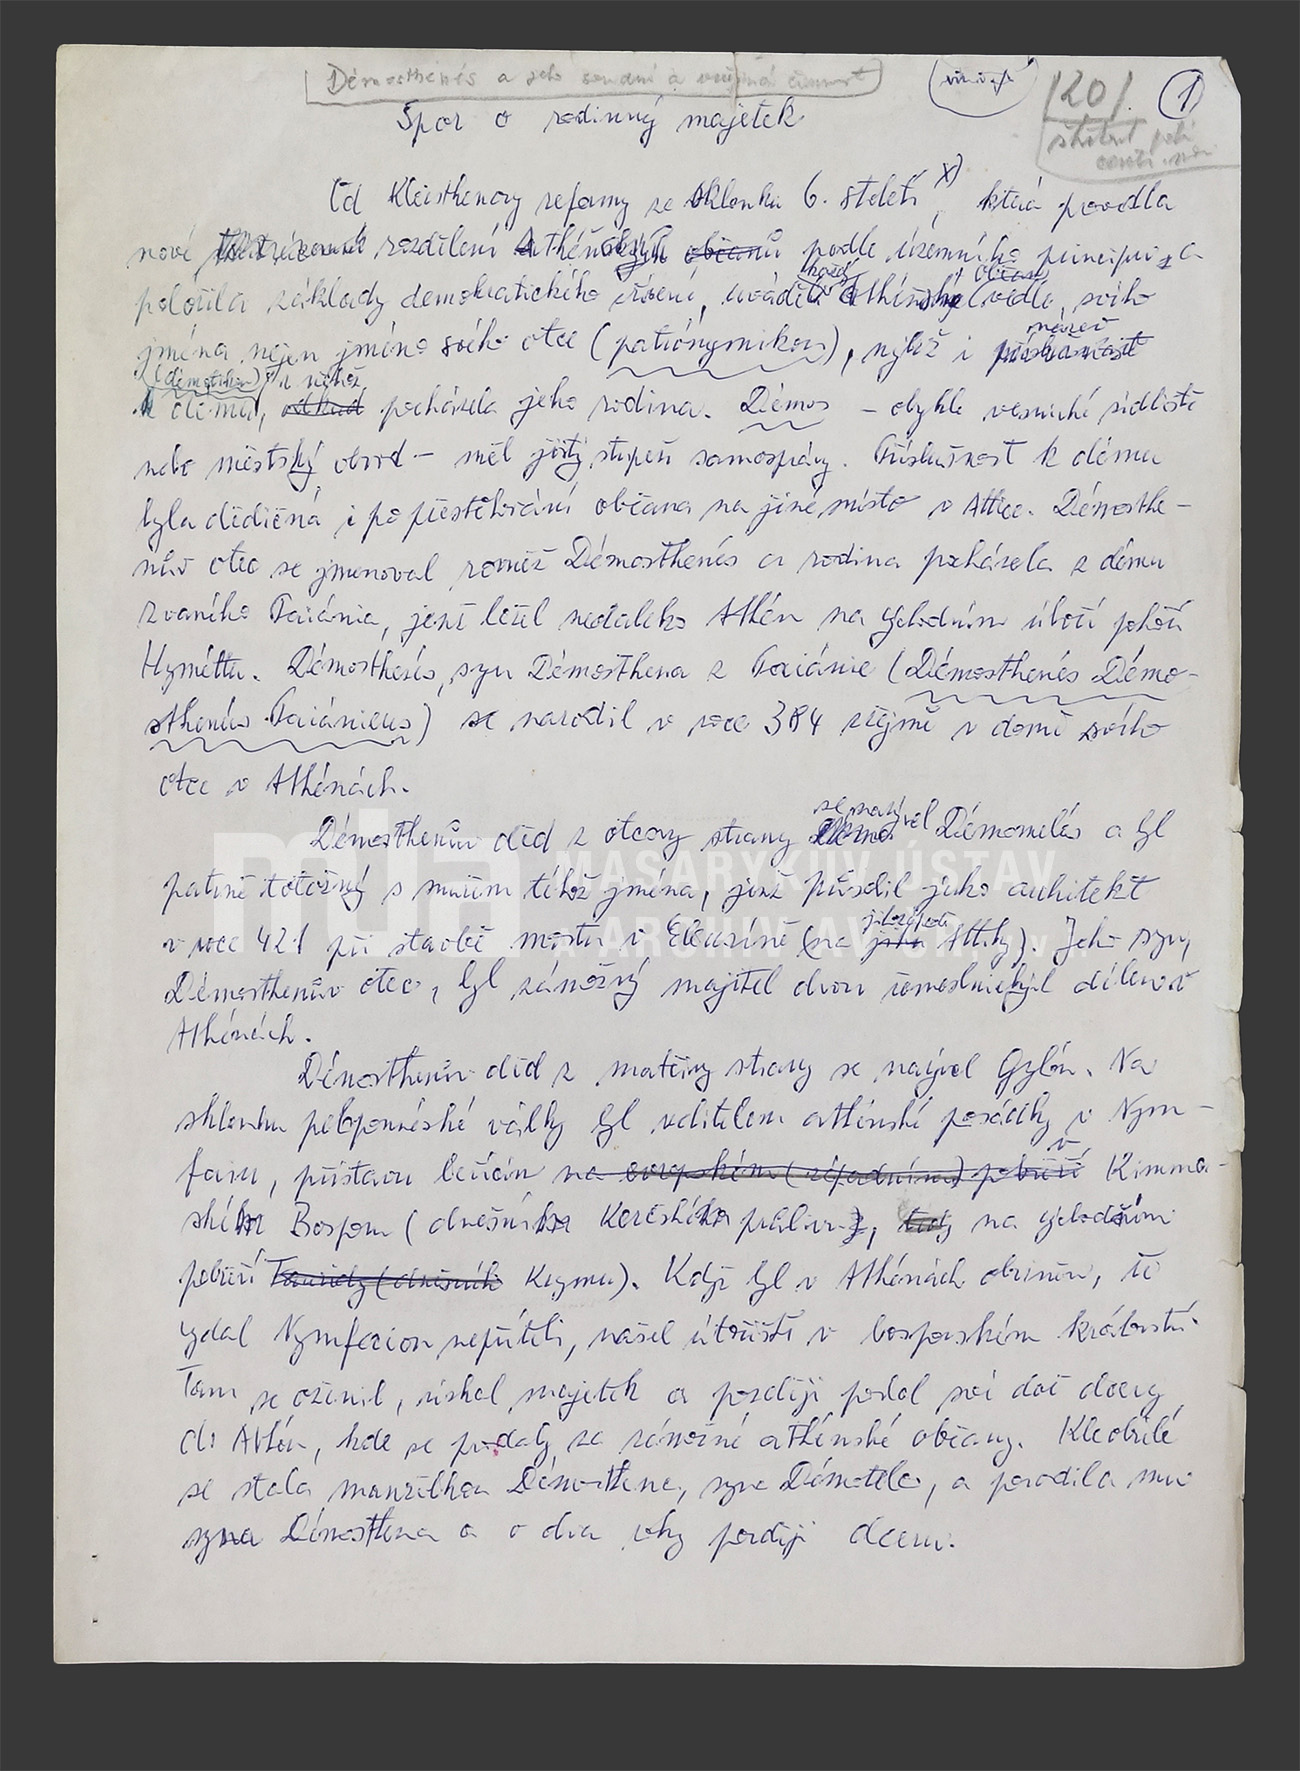 Démosthenés a jeho soudní a veřejná činnost
1
120
Spor o rodinný majetek
Od Kleisthenovy reformy ze sklonku 6. století x), která provedla
nové rozdělení Athéňanů podle územního principu a
položila základy demokratického zřízení, uváděl každý athénský občan vedle svého
jména nejen jméno svého otce (patrónymikon), nýbrž i název
(démotikon) z něhož
dému, odkud pocházela jeho rodina. Démos – obykle vesnické sídliště
nebo městský obvod – měl jistý stupeň samosprávy. Příslušnost k dému
byla dědičná i po přestěhování občana na jiné místo v Attice. Démosthe-
nův otec se jmenoval rovněž Démosthenés a rodina pocházela z dému
zvaného Paiánia, jenž ležel nedaleko Athén na východním úbočí pohoří
Hyméttu. Démosthenés, syn Démosthena z Paiánie (Démosthenés Démo-
sthenús Paiánieus) se narodil v roce 384 zřejmě v domě svého
otce v Athénách.
Démosthenův děd z otcovy strany se nazýval Démomelés a byl
patrně totožný s mužem téhož jména, jenž působil jako architekt
v roce 421 při stavbě mostu v Eleusíně (na jihozápadě Attiky). Jeho syn,
Démosthenův otec, byl zámožný majitel dvou řemeslnických dílen v
Athénách.
Démosthenův děd z matčiny strany se nazýval Gylón. Na
sklonku peloponnéské války byl velitelem athénské posádky v Nym-
faiu, přístavu ležícím na evropském (západním) pobřeží v Kimme-
ském Bosporu (dnešním Kerčském průlivu), tedy na východním
pobřeží Tauridy (dnešního Krymu). Když byl v Athénách obviněn, že
vydal Nymfaion nepříteli, našel útočiště v bosporském království.
Tam se oženil, získal majetek a později poslal své dvě dcery
do Athén, kde se provdaly za zámožné athénské občany. Kleobúlé
se stala manželkou Démosthena, syna Démomela, a porodila mu
syna Démosthena a o dva roky později dceru.
mda
MASARYKŮV ÚSTAV
A ARCHIV AV ČR, v. v. i.